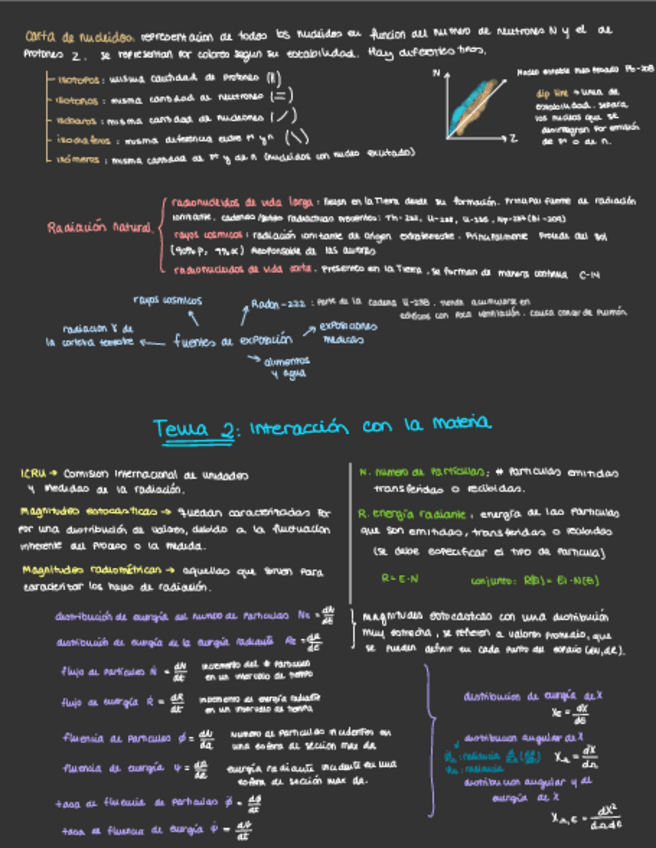 Carta de nucleidos. representación de todos los nucleidos en funcion del numero de neutrones N y el de
Protones Z. se representan por colores segun su estabilidad. Hay diferentes tipos.
Isotopos: misma cantidad de protones (||)
Isotonos: misma cantidad de neutrones (=)
Isobaros: misma cantidad de nucleones (/)
isodiaferos: misma diferencia entre p⁺ y n (\\)
isómeros: misma cantidad de p⁺ y de n (nucleidos con nucleo excitado)
N
Z
Nucleo estable mas pesado Pb-208
dip line → linea de
estabilidad. separa
los nucleos que se
desintegran por emisión
de p⁺ o de n.
Radiación Natural.
radionucleidos de vida larga: llegan en la Tierra desde su formación. Principal fuente de radiación
ionizante. cadenas/series radiactivas presentes: Th-232, U-238, U-235, Np-237 (Bi-209)
rayos cosmicos: radiación ionizante de origen extraterrestre. Principalmente Procede del Sol
(90% p, 9% α) Responsable de las auroras
radionucleidos de vida corta. presentes en la Tierra. se forman de manera continua C-14
rayos cosmicos
Radon-222: Parte de la cadena U-238. tiende acumularse en
edificios con poca ventilación. causa cancer de Pulmón.
radiación γ de
la corteza terrestre
fuentes de exposición
exposiciones
medicas
alimentos
y agua
Tema 2: Interacción con la materia
ICRU → Comision Internacional de unidades
y medidas de la radiación.
Magnitudes estocasticas → quedan caracterizadas por
por una distribución de valores, debido a la fluctuación
inherente del proceso o la medida.
Magnitudes radiométricas → aquellas que sirven para
caracterizar los haces de radiación.
N. Numero de Partículas: # Particulas emitidas
transferidas o recibidas.
R. energía radiante. energía de las particulas
que son emitidas, transferidas o recibidas
(se debe especificar el tipo de Particula)
R = E·N
conjunto: R(E) = Ei·N(E)
distribución de energía del numero de Particulas N_E = dN/dE
distribución de energía de la energía radiante R_E = dR/dE
magnitudes estocasticas con una distribución
muy estrecha, se refieren a valores promedio, que
se pueden definir en cada punto del espacio (dN, dR).
flujo de partículas Ṅ = dN/dt incremento del # Particulas
en un intervalo de tiempo
flujo de energía Ṙ = dR/dt incremento de energía radiante
en un intervalo de tiempo
fluencia de Particulas ϕ = dN/da Numero de Particulas incidentes en
una esfera de sección max da
fluencia de energía ψ = dR/da energía radiante incidente en una
esfera de sección max da.
tasa de fluencia de particulas ϕ̇ = dϕ/dt
tasa de fluencia de energía ψ̇ = dψ/dt
distribucion de energía de X
X_E = dX/dE
distribucion angular de X
X_Ω = dX/dΩ
distribucion angular y de
energía de X
X_Ω,E = dX²/dΩdE